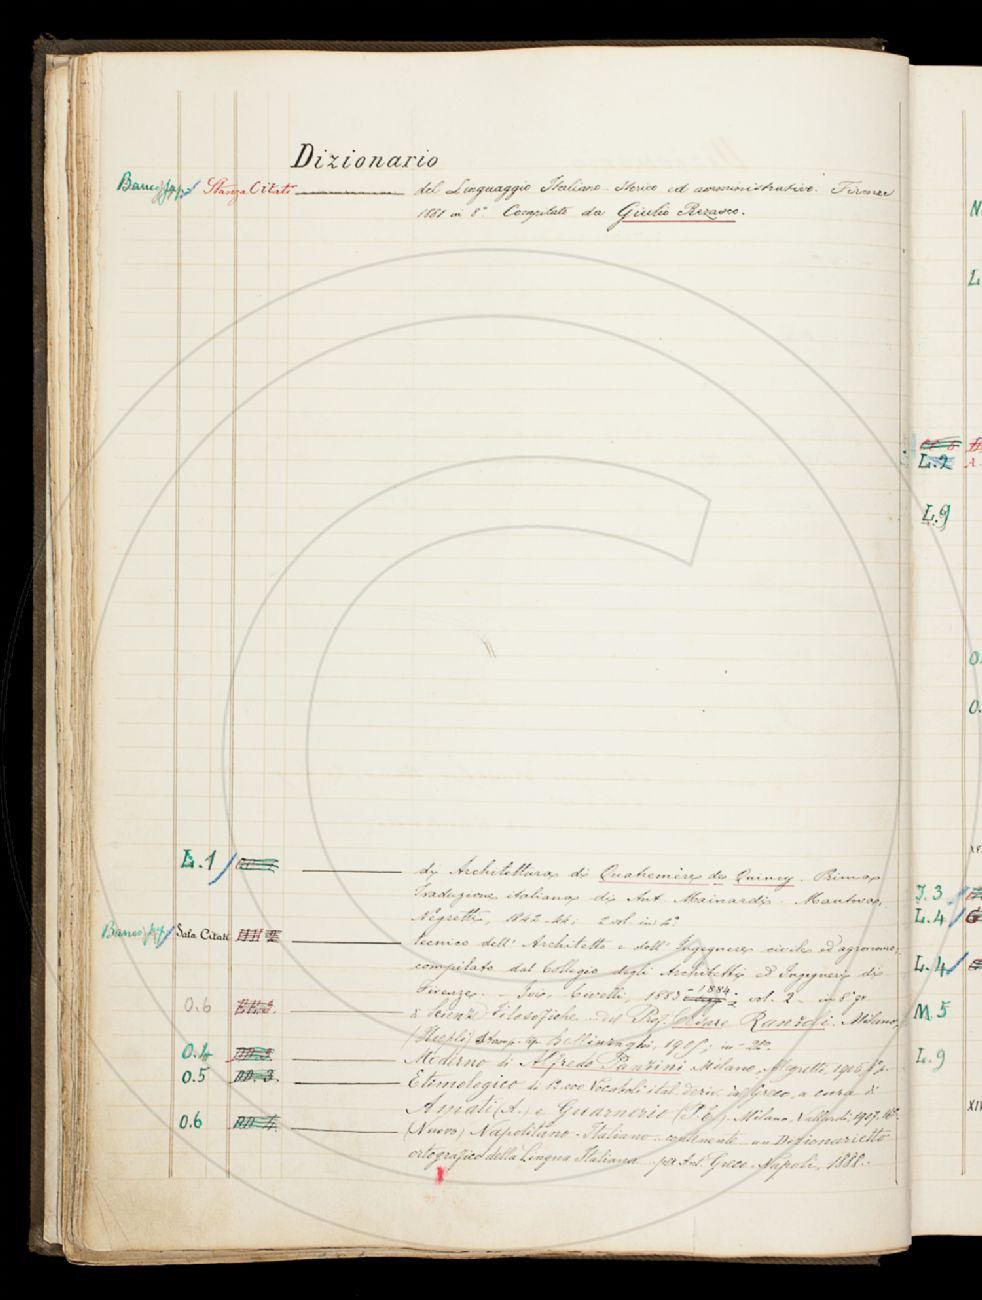 Dizionario
Stanza Citati del Linguaggio Italiano Storico ed amministrativo. Firenze
1881 in 8º Compilato da Giulio Rezasco.
L.1 di Architettura di Quatremere de Quincy. Prima
Traduzione italiana di Ant. Mainardi. Mantova,
Negretti, 1842-44; 2 vol. in 4º
Sala Citati tecnico dell' Architetto e dell' Ingegnere civile ed agronomo,
compilato dal Collegio degli Architetti ed Ingegneri di
Firenze. Ivi, Civelli, 1883-1884 vol. 2 in 8º gr
0.6 di Scienze Filosofiche del Prof. Cesare Ranzoli. Milano,
(Hoepli) Bellinzaghi, 1905; in-
0.4 Moderno di Alfredo Panzini Milano,
0.5 Etimologico di 12.000 Vocaboli ital. deriv. dal Greco, a cura di
Amati (A.) e Guarnerio (P. E.). Milano, Vallardi, 1907, 16º
0.6 (Nuovo) Napolitano-Italiano contenente un Dizionarietto
ortografico della Lingua Italiana per Ant. Greco. Napoli, 1888.
L.2
L.9
J.3
L.4
L.4
M.5
L.9